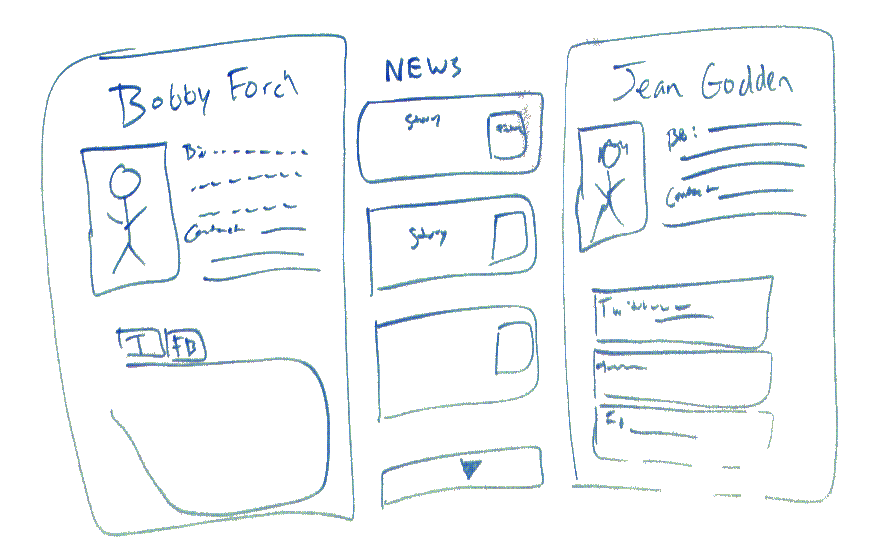 Bobby Forch
Bio
Contact
I FB
NEWS
Story
Story
Jean Godden
Bio:
Contact
Twitter